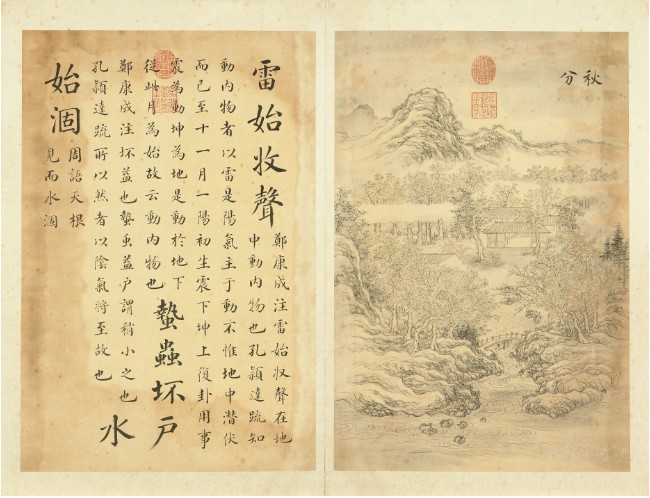 秋分
雷始收聲
鄭康成注雷始收聲在地
中動內物也孔穎達疏知
動內物者以雷是陽氣主于動不惟地中潛伏
而已至十一月一陽初生震下坤上復卦用事
震為動坤為地是動於地下
從此月為始故云動內物也
蟄蟲坏戶
鄭康成注坏益也蟄蟲益戶謂稍小之也
孔穎達疏所以然者以陰氣將至故也
水
始涸
周語天根
見而水涸